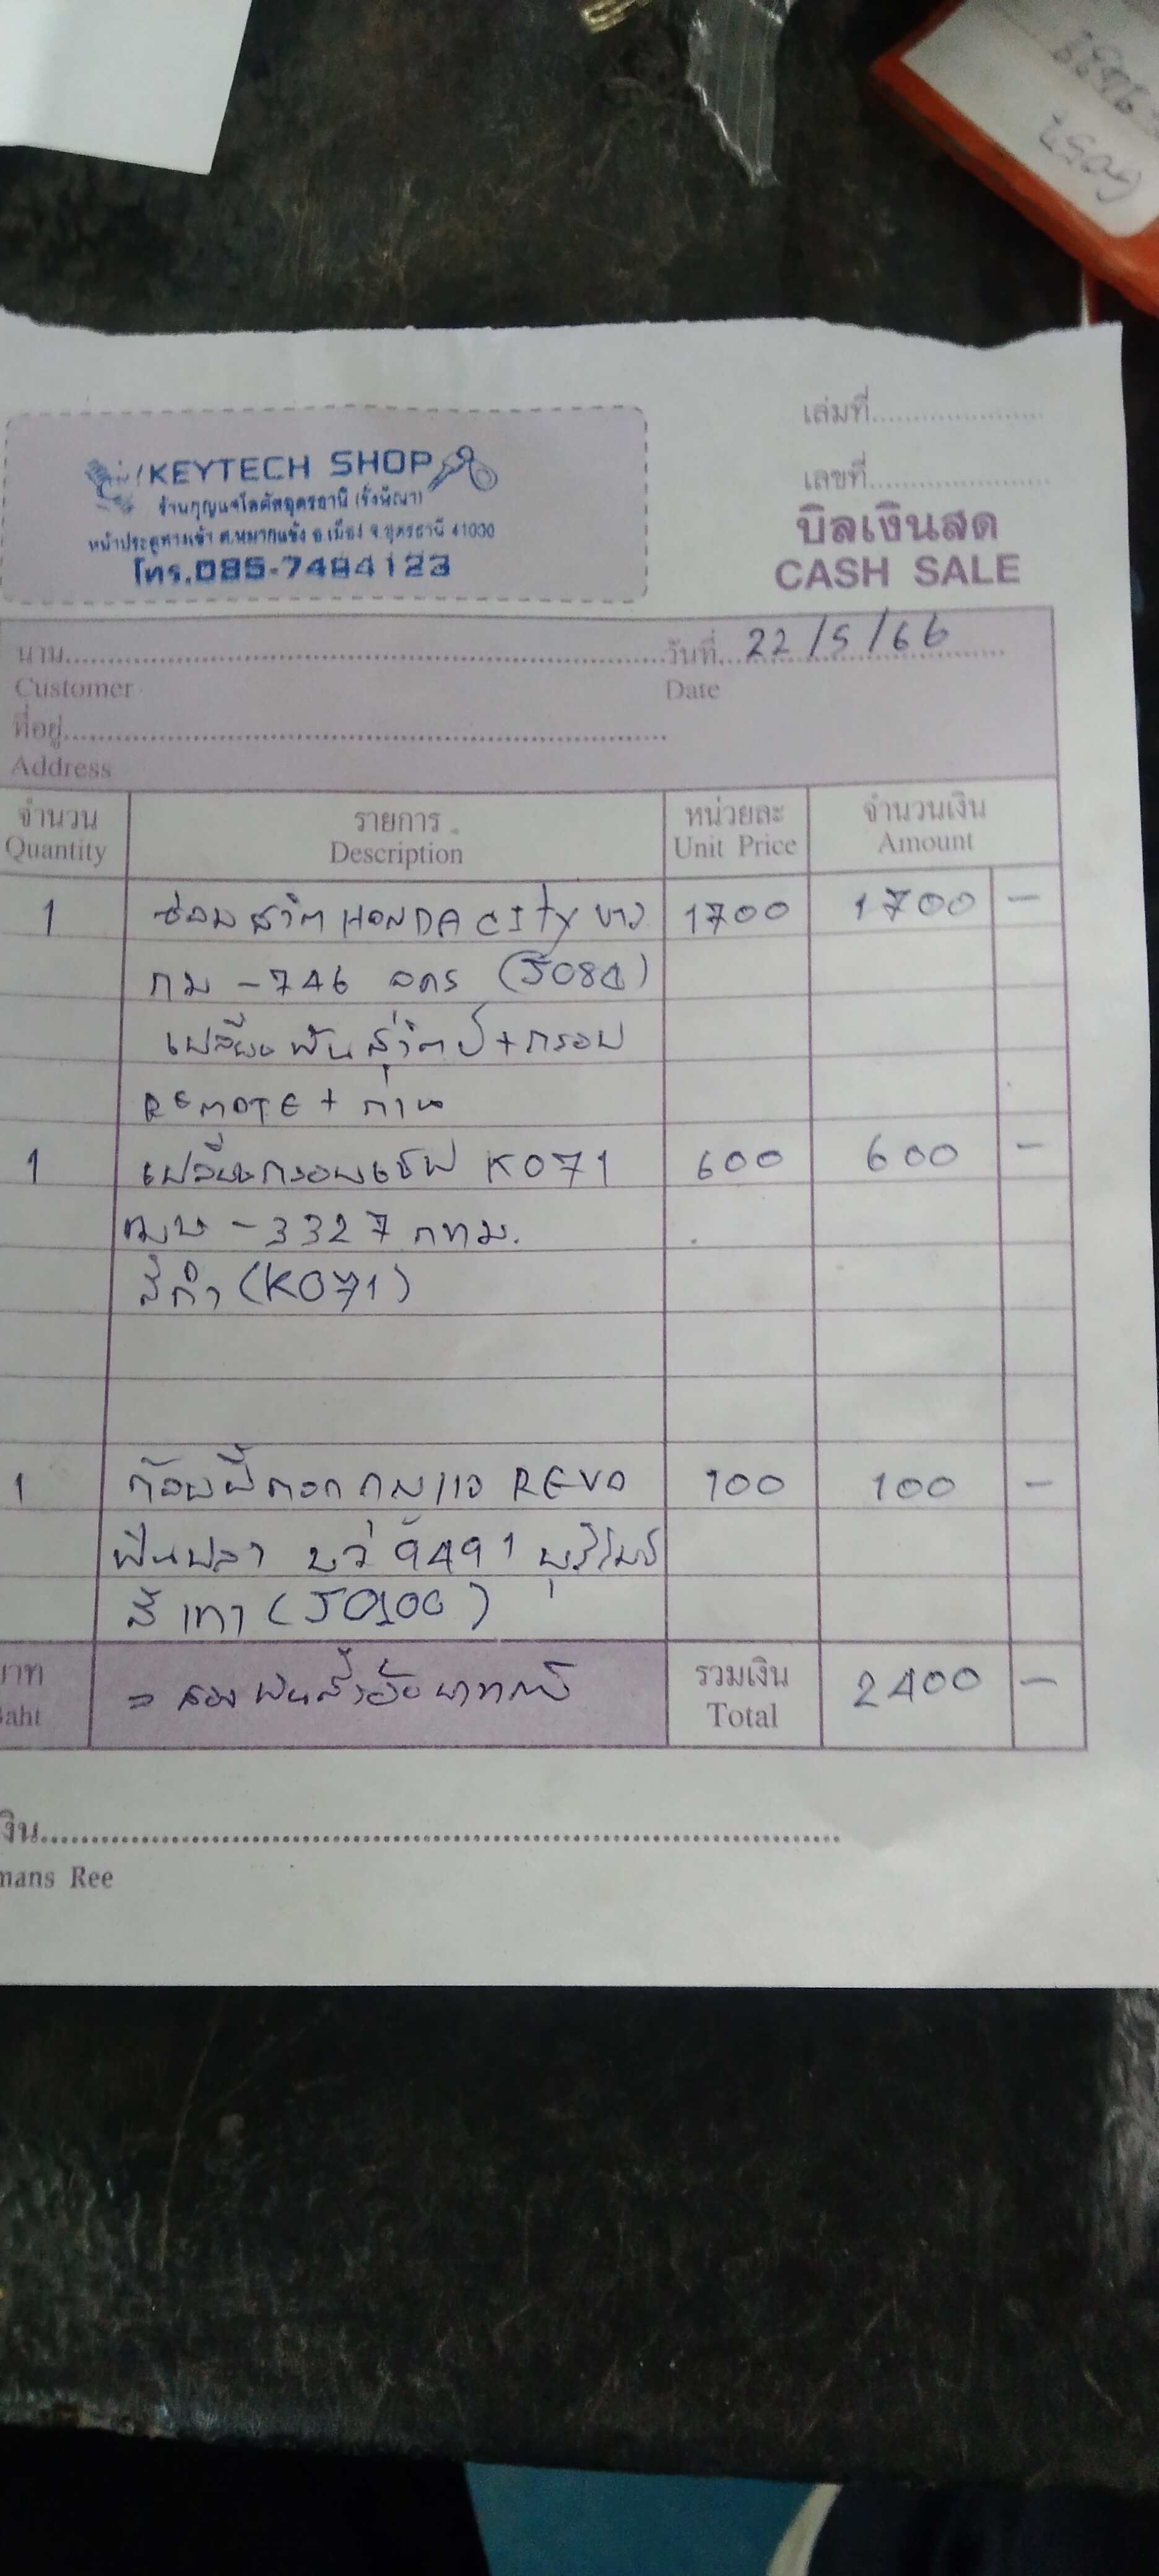 KEYTECH SHOP
ร้านกุญแจโลตัสอุดรธานี (รังษิณา)
หน้าประตูทางเข้า ต.หมากแข้ง อ.เมือง จ.อุดรธานี 41000
โทร.085-7484123
เล่มที่
เลขที่
บิลเงินสด
CASH SALE
นาม วันที่ 22/5/66
Customer Date
ที่อยู่
Address
จำนวน รายการ หน่วยละ จำนวนเงิน
Quantity Description Unit Price Amount
1 ซ่อมสวิต HONDA CITY ขาว 1700 1700 -
กม - 746 อดร (J084)
เปลี่ยนฟันสวิตช์ + กรอบ
REMOTE + ถ่าน
1 เปลี่ยนกรอบเซิฟ K071 600 600 -
- 3327 กทม.
สีดำ (K071)
1 REVO 100 100 -
บว 9491 บุรีรัมย์
สีเทา (J0100)
บาท = สองพันสี่ร้อยบาทถ้วน รวมเงิน 2400 -
Baht Total
งิน
mans Ree